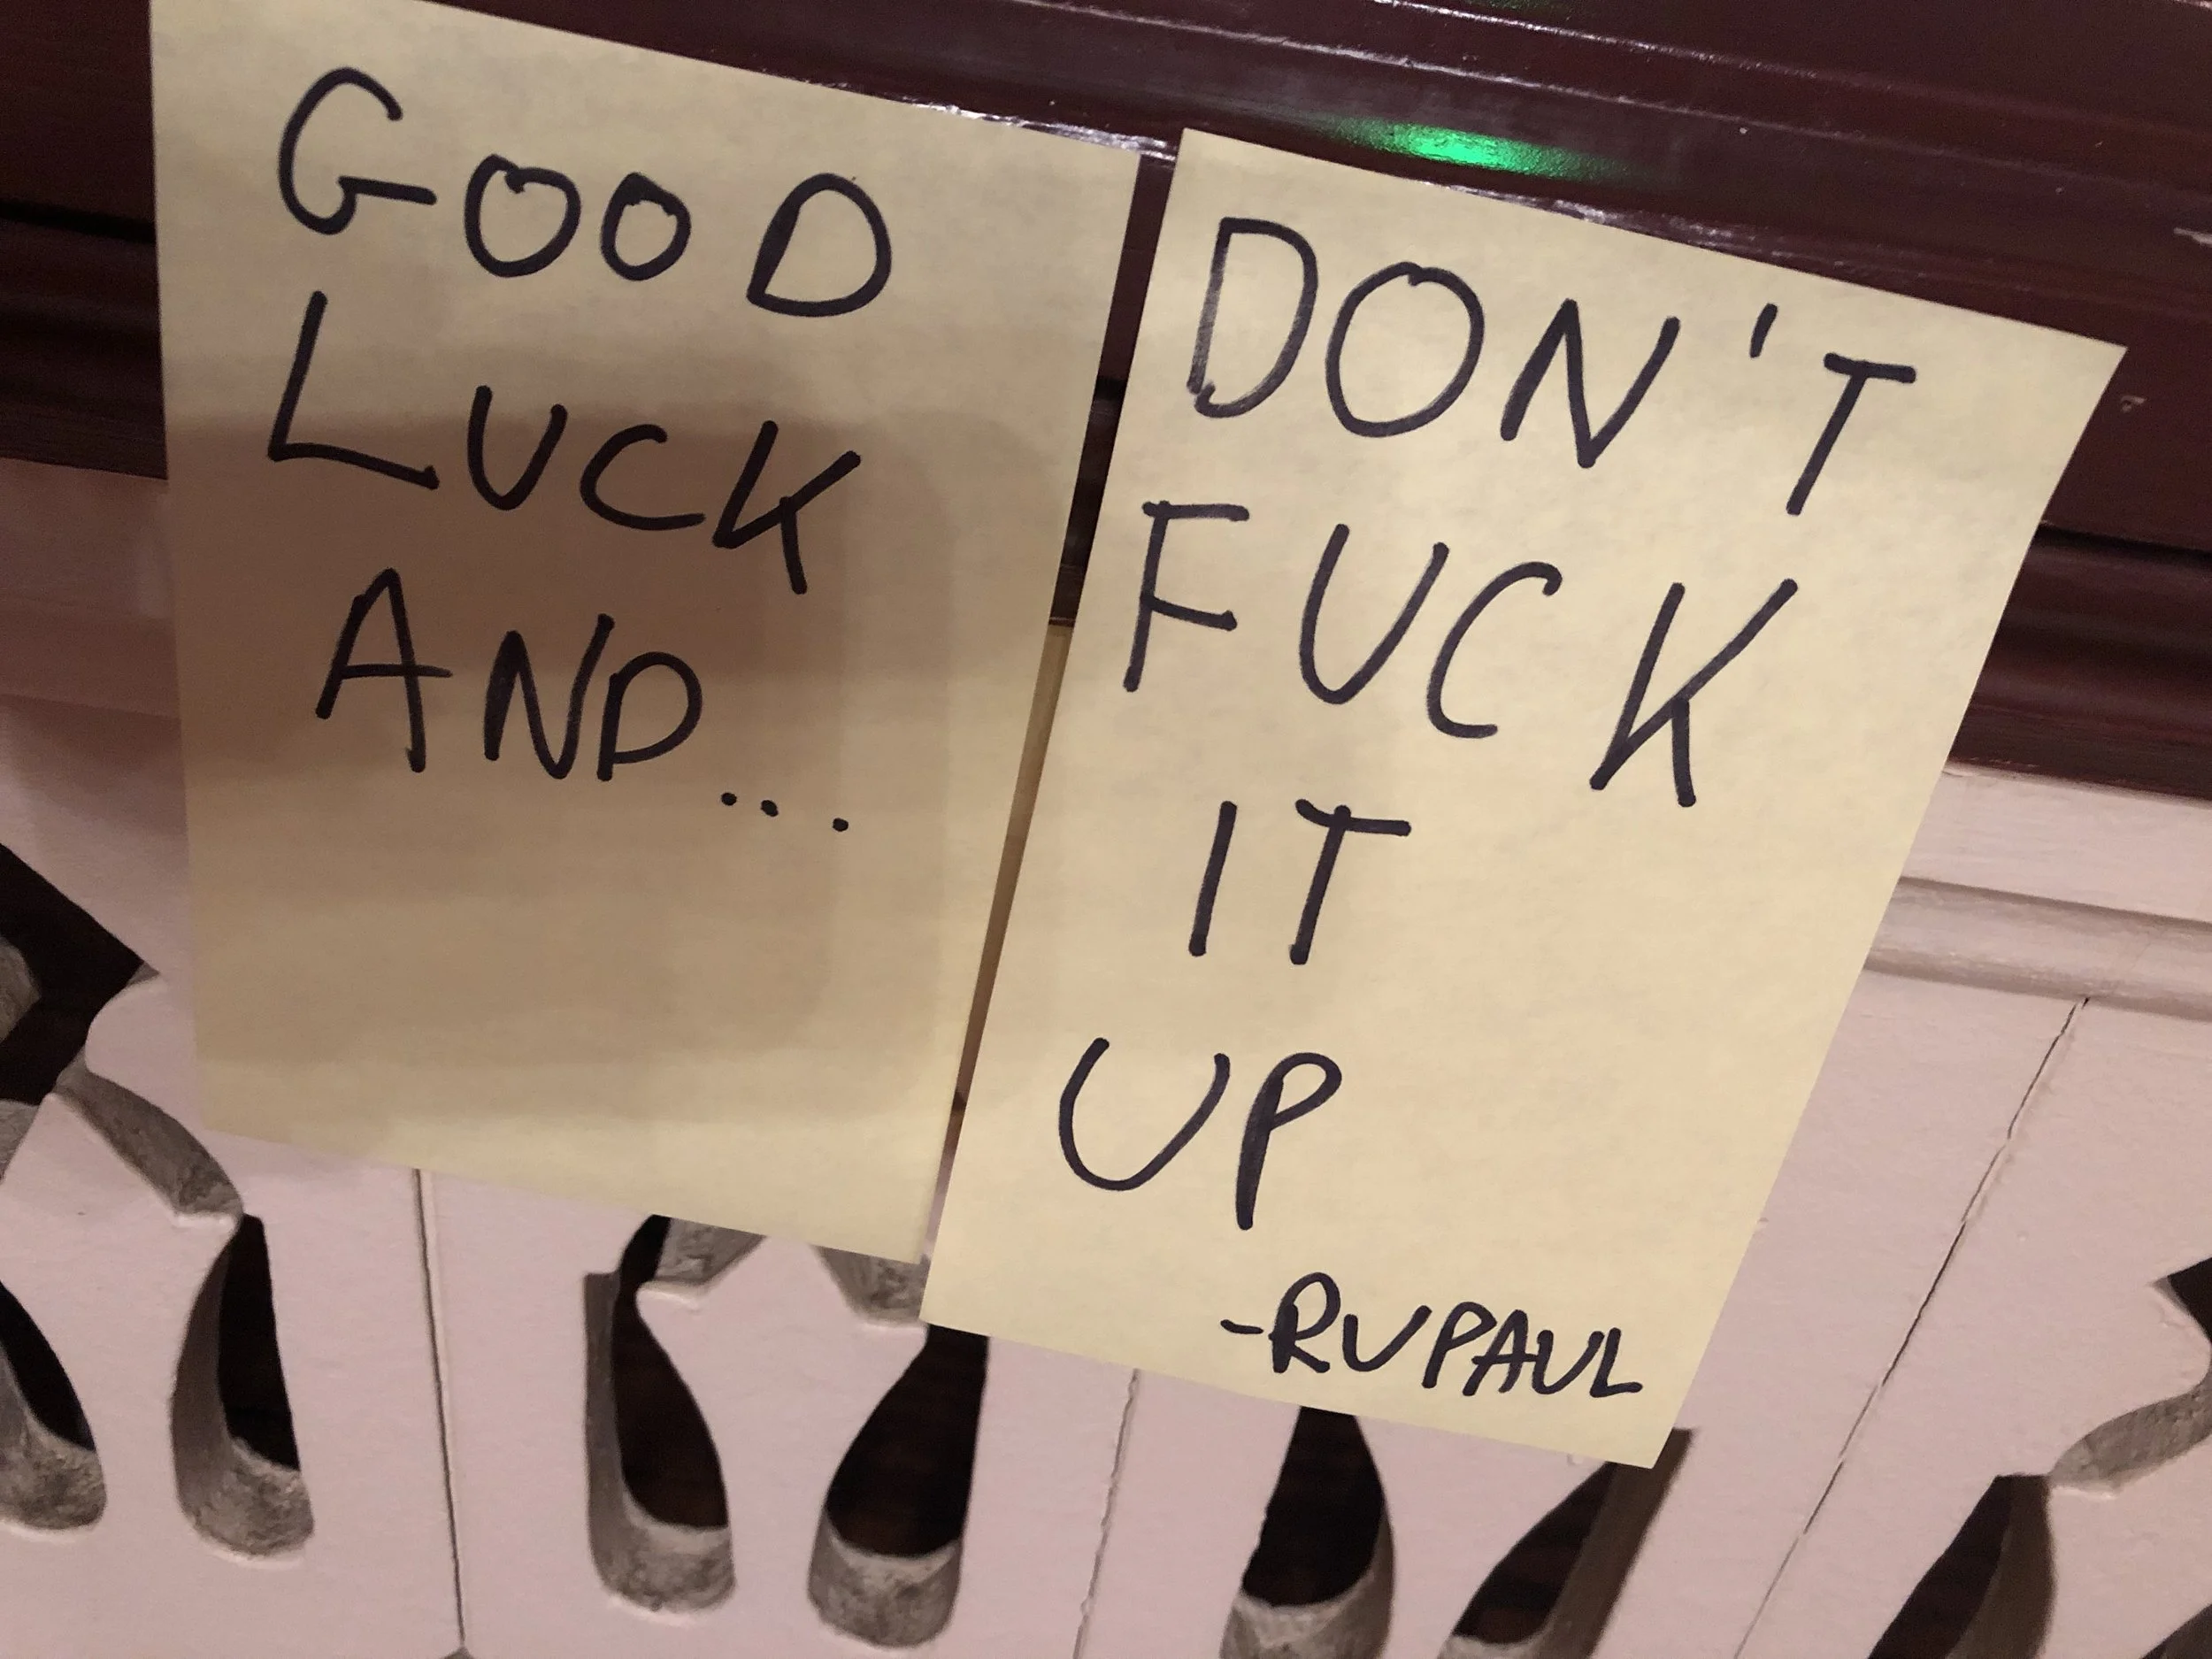 GOOD
LUCK
AND...
DON'T
FUCK
IT
UP
-RUPAUL